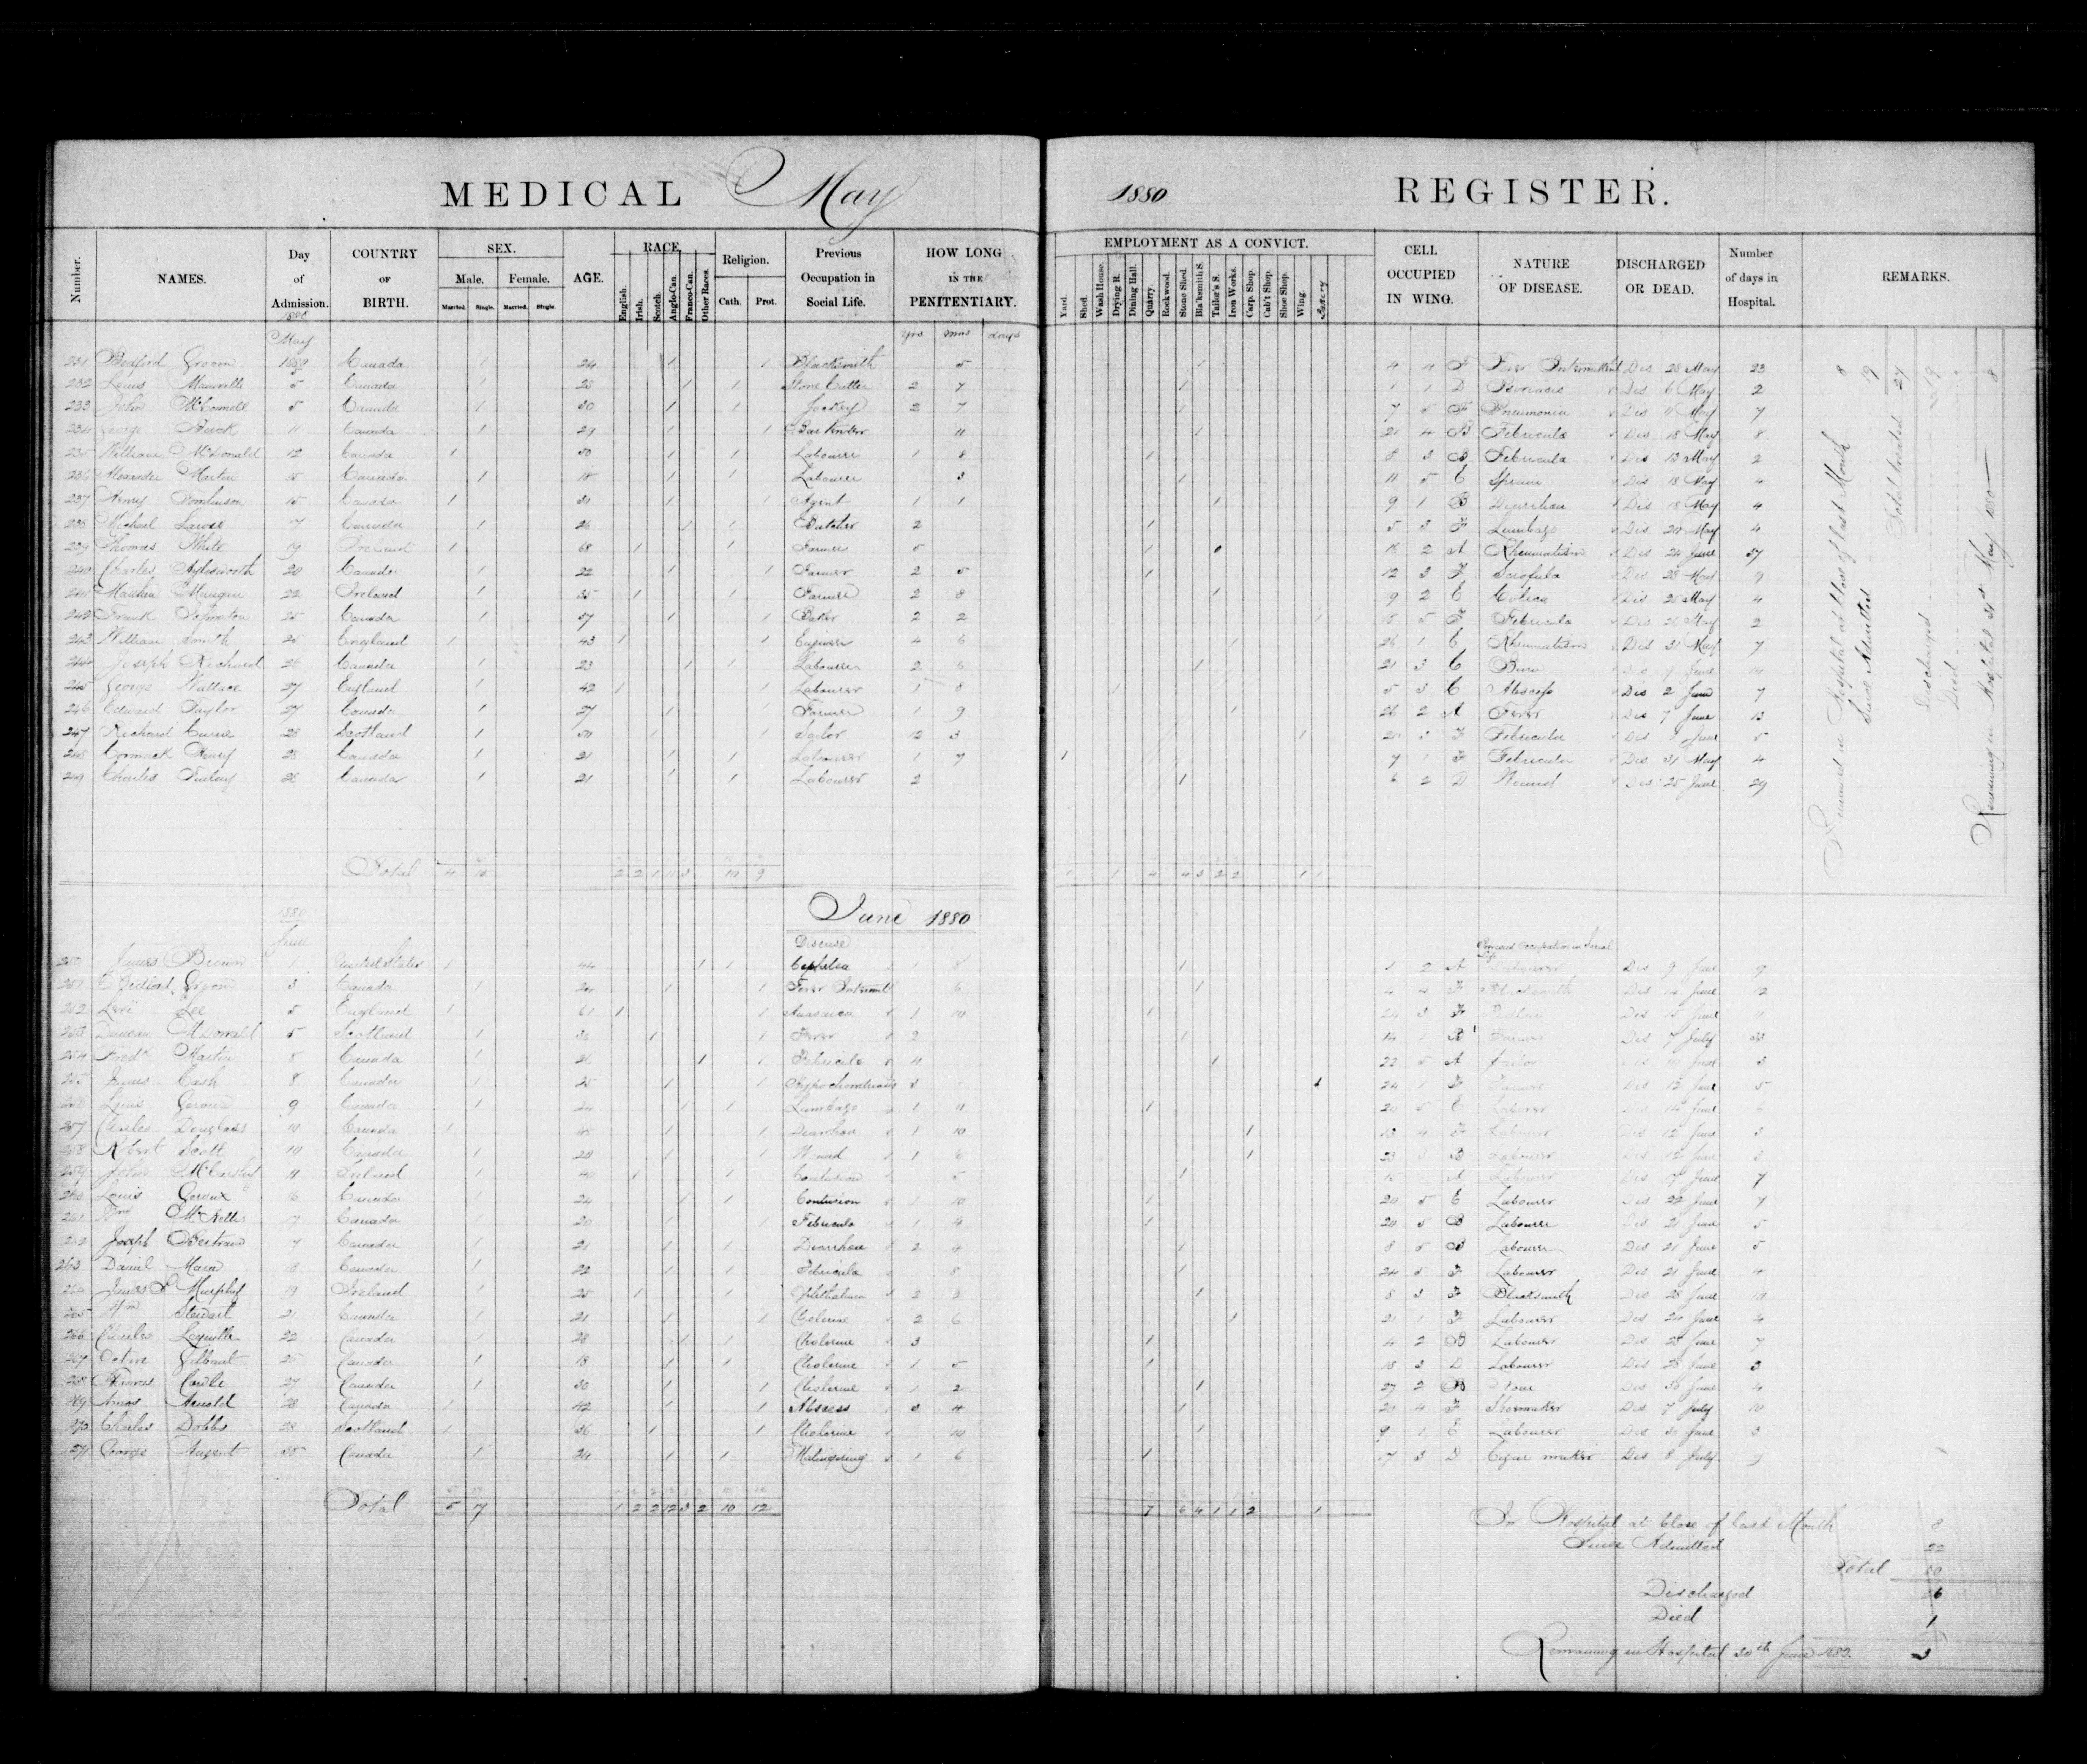 MEDICAL May 1880 REGISTER.
Number. NAMES. Day of Admission. COUNTRY OF BIRTH. SEX. Male. Female. Married. Single. Married. Single. AGE. RACE. English. Irish. Scotch. Anglo-Can. Franco-Can. Other Races. Religion. Cath. Prot. Previous Occupation in Social Life. HOW LONG IN THE PENITENTIARY. EMPLOYMENT AS A CONVICT. Yard. Shed. Wash House. Drying R. Dining Hall. Quarry. Rockwood. Stone Shed. Bla'ksmith S. Tailor's S. Iron Works. Carp. Shop. Cab't Shop. Shoe Shop. Wing. CELL OCCUPIED IN WING. NATURE OF DISEASE. DISCHARGED OR DEAD. Number of days in Hospital. REMARKS.
1880
May yrs mos days
231 Bedford Groom Canada 1 24 1 1 Blacksmith 5 1 4 4 F Fever Intermittent Dis 28 May 23
232 Louis 5 Canada 1 28 1 1 Stone Cutter 2 7 1 1 1 D Psoriasis Dis 6 May 2
233 John McConnell 5 Canada 1 30 1 1 Jockey 2 7 1 7 5 F Pneumonia Dis 11 May 7
234 George Buck 11 Canada 1 29 1 1 Bar tender 11 1 21 4 B Febricula Dis 18 May 8
235 William McDonald 12 Canada 1 50 1 1 Labourer 1 8 1 8 3 B Febricula Dis 13 May 2
236 Alexander Martin 15 Canada 1 18 1 1 Labourer 3 1 11 5 E Sprain Dis 18 May 4
237 Henry Tomlinson 15 Canada 1 31 1 1 Agent 1 1 1 9 1 B Diarrhoea Dis 18 May 4
238 Michael Larose 17 Canada 1 26 1 1 Butcher 2 1 5 3 F Lumbago Dis 20 May 4
239 Thomas White 19 Ireland 1 68 1 1 Farmer 5 1 16 2 A Rheumatism Dis 24 June 37
240 Charles Aylesworth 20 Canada 1 22 1 1 Farmer 2 5 1 12 3 F Scrofula Dis 28 May 9
241 Matthew Mangan 22 Ireland 1 35 1 1 Farmer 2 8 1 19 2 E Colica Dis 25 May 4
242 Frank Johnston 25 Canada 1 57 1 1 Baker 2 2 1 15 5 F Febricula Dis 26 May 2
243 William Smith 25 England 1 43 1 1 Engineer 4 6 1 26 1 E Rheumatism Dis 31 May 7
244 Joseph Richard 26 Canada 1 23 1 1 Labourer 2 6 1 21 3 C Burn Dis 9 June 14
245 George Wallace 27 England 1 42 1 1 Labourer 1 8 1 5 3 C Abscess Dis 2 June 7
246 Edward Taylor 27 Canada 1 27 1 1 Farmer 1 9 1 26 2 A Fever Dis 7 June 13
247 Richard Currie 28 Scotland 1 50 1 1 Tailor 12 3 1 20 3 F Febricula Dis June 5
248 Cormack 28 Canada 1 21 1 1 Labourer 1 7 1 7 1 F Febricula Dis 31 May 4
249 Charles Finlay 28 Canada 1 21 1 1 Labourer 2 1 6 2 D Wound Dis 25 June 29
Remained in Hospital at Close of last Month 8
Since Admitted 19
Total treated 27
Discharged 19
Died
Remaining in Hospital 31st May 1880 8
Total 4 15 2 2 1 11 3 10 9 1 1 4 4 3 2 2 1 1
1880 June 1880
June Disease Previous Occupation in Social Life
250 James Brown 1 United States 1 44 1 1 1 8 1 1 2 A Labourer Dis 9 June 9
251 Bedford Groom 3 Canada 1 24 1 1 Fever Intermitt 6 1 4 4 F Blacksmith Dis 14 June 12
252 Levi Lee 5 England 1 61 1 1 Anasarca 1 10 1 24 3 F Dis 15 June 11
253 Duncan McDonald 5 Scotland 1 1 1 Fever 2 1 14 1 B Farmer Dis 7 July 33
254 Fredk Martin 8 Canada 1 1 1 Febricula 4 1 22 5 A Tailor Dis 10 June 3
255 James Cash 8 Canada 1 25 1 1 Hypochondriasis 1 24 1 F Farmer Dis 12 June 5
256 Louis Geroux 9 Canada 1 24 1 1 Lumbago 1 11 1 20 5 E Laborer Dis 14 June 6
257 Charles Douglass 10 Canada 1 48 1 1 Diarrhoea 1 10 1 13 4 F Labourer Dis 12 June 3
258 Robert Scott 10 Canada 1 20 1 1 Wound 1 6 1 23 3 B Labourer Dis 12 June 3
259 John McCarthy 11 Ireland 1 40 1 1 Contusion 5 1 15 1 A Labourer Dis 17 June 7
260 Louis Geroux 16 Canada 1 24 1 1 Contusion 1 10 1 20 5 E Labourer Dis 22 June 7
261 Wm 17 Canada 1 20 1 1 Febricula 1 4 1 20 5 B Labourer Dis 21 June 5
262 Joseph Bertrand 17 Canada 1 21 1 1 Diarrhoea 2 4 1 8 5 B Labourer Dis 21 June 5
263 Daniel 18 Canada 1 22 1 1 Febricula 8 1 24 5 F Labourer Dis 21 June 4
264 James Murphy 19 Ireland 1 25 1 1 Ophthalmia 2 2 1 8 3 F Blacksmith Dis 28 June 10
265 Wm Stewart 21 Canada 1 21 1 1 Cholerine 2 6 1 21 1 F Labourer Dis 24 June 4
266 Charles 22 Canada 1 28 1 1 Cholerine 3 1 4 2 B Labourer Dis 28 June 7
267 Octave 26 Canada 1 18 1 1 Cholerine 1 5 1 18 3 D Labourer Dis 28 June 3
268 Thomas 27 Canada 1 30 1 1 Cholerine 1 2 1 27 2 B None Dis 30 June 4
269 Amos Arnold 28 Canada 1 42 1 1 Abscess 3 4 1 20 4 F Shoemaker Dis 7 July 10
270 Charles Dobbs 28 Scotland 1 36 1 1 Cholerine 10 1 9 1 E Labourer Dis 30 June 3
271 George Canada 1 24 1 1 Malingering 1 6 1 17 3 D Cigar maker Dis 8 July 9
Total 5 17 1 2 2 12 3 2 10 12 7 6 4 1 1 2 1
In Hospital at Close of last Month 8
Since Admitted 22
Total 30
Discharged 26
Died 1
Remaining in Hospital 30th June 1880. 3